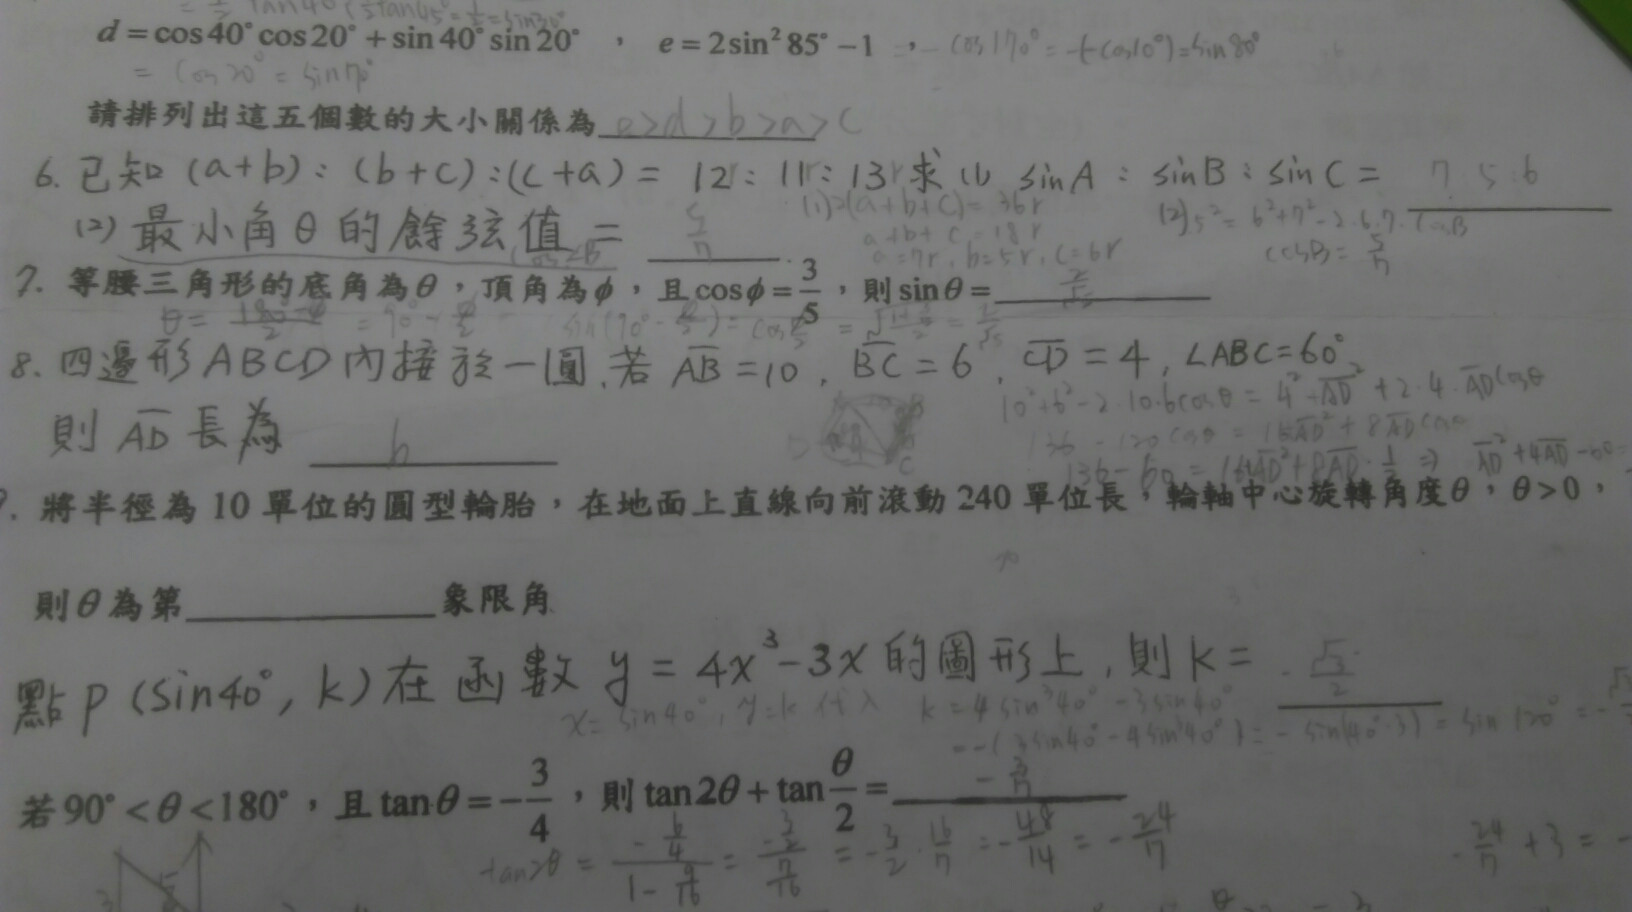 d = cos40°cos20° + sin40°sin20° , e = 2sin²85° − 1 , = - cos170° = -(-cos10°) = sin80°
= cos20° = sin70°
請排列出這五個數的大小關係為 e>d>b>a>c
6. 已知 (a+b) : (b+c) : (c+a) = 12 : 11 : 13 求 (1) sinA : sinB : sinC = 7:5:6
(1) 2(a+b+c) = 36r
(2) 最小角θ的餘弦值 = 5/7
a+b+c = 18r
a=7r, b=5r, c=6r
(2) 5² = 6²+7²-2·6·7·cosB
cosB = 5/7
7. 等腰三角形的底角為θ,頂角為φ,且cosφ = 3/5,則sinθ = 2/√5
θ = (180°-φ)/2 = 90° - φ/2
8. 四邊形ABCD內接於一圓,若 AB = 10 , BC = 6 , CD = 4 , ∠ABC = 60°
10²+6²-2·10·6cosθ = 4²+AD²+2·4·AD cosθ
則 AD 長為 6
136 - 120cosθ = 16AD² + 8AD cosθ
136 - 60 = 16AD² + 8AD · 1/2 ⇒ AD² + 4AD - 60
. 將半徑為 10 單位的圓型輪胎,在地面上直線向前滾動 240 單位長,輪軸中心旋轉角度θ,θ > 0,
則θ為第 象限角
點P (sin40°, k) 在函數 y = 4x³ - 3x 的圖形上,則 k = -√3/2
x = sin40°, y=k 代入 k = 4sin³40° - 3sin40°
= -(3sin40° - 4sin³40°) = - sin(40°·3) = sin120° = -
若 90° < θ < 180°,且 tanθ = -3/4,則 tan2θ + tan θ/2 = -3/7
tan2θ = (-6/4)/(1 - 9/16) = (-3/2)/(7/16) = -3/2 · 16/7 = -48/14 = -24/7
-24/7 + 3 = -